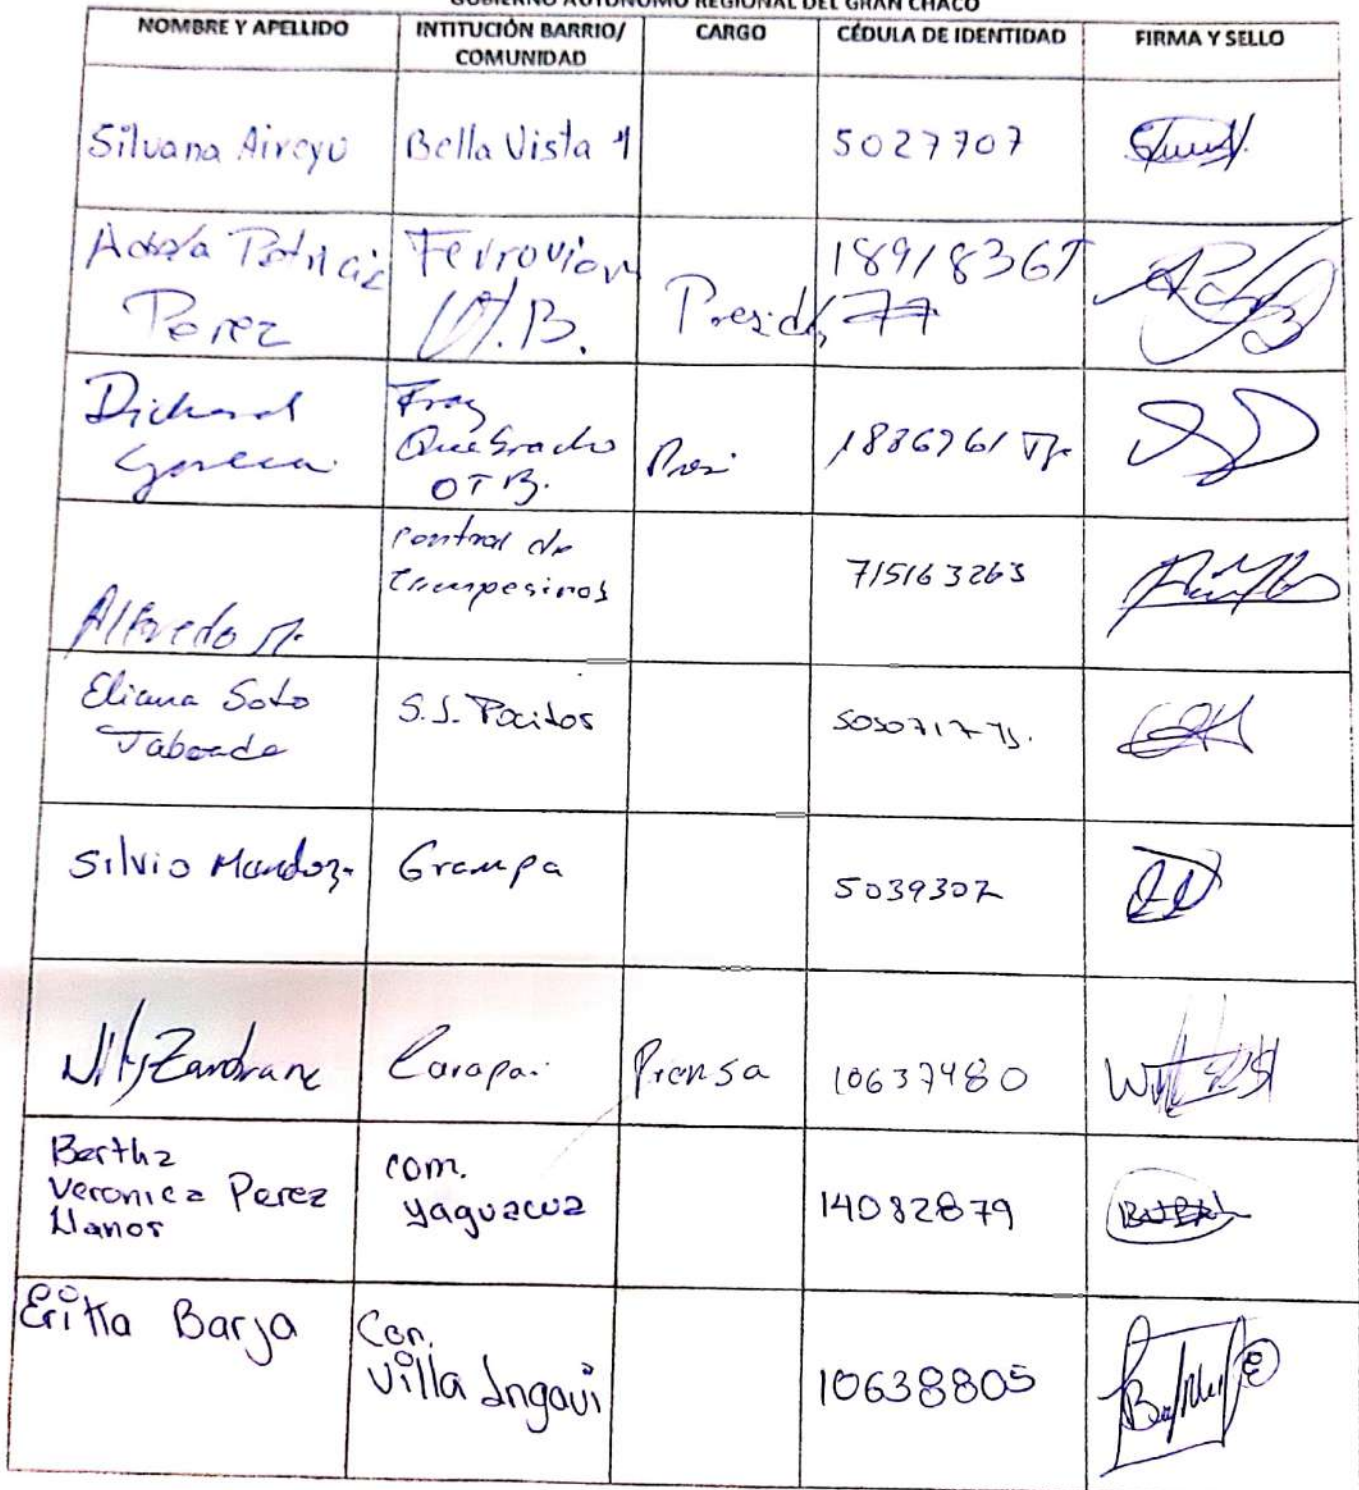 GOBIERNO AUTÓNOMO REGIONAL DEL GRAN CHACO
NOMBRE Y APELLIDO
INTITUCIÓN BARRIO/
COMUNIDAD
CARGO
CÉDULA DE IDENTIDAD
FIRMA Y SELLO
Silvana Aireyu
Bella Vista 1
5027707
Perez
Ferroviar
Presid
Quebracho
OTB.
Presi
Central de
Campesinos
715163263
Alfredo M.
Eliana Soto
Taboada
S.J. Pocitos
Silvio Mendoz
Grampa
5039302
Zambrana
Carapa
Prensa
10637480
Bertha
Veronica Perez
Llanos
com.
yaguacua
14082879
Erika Barja
Con.
Villa Ingavi
10638805